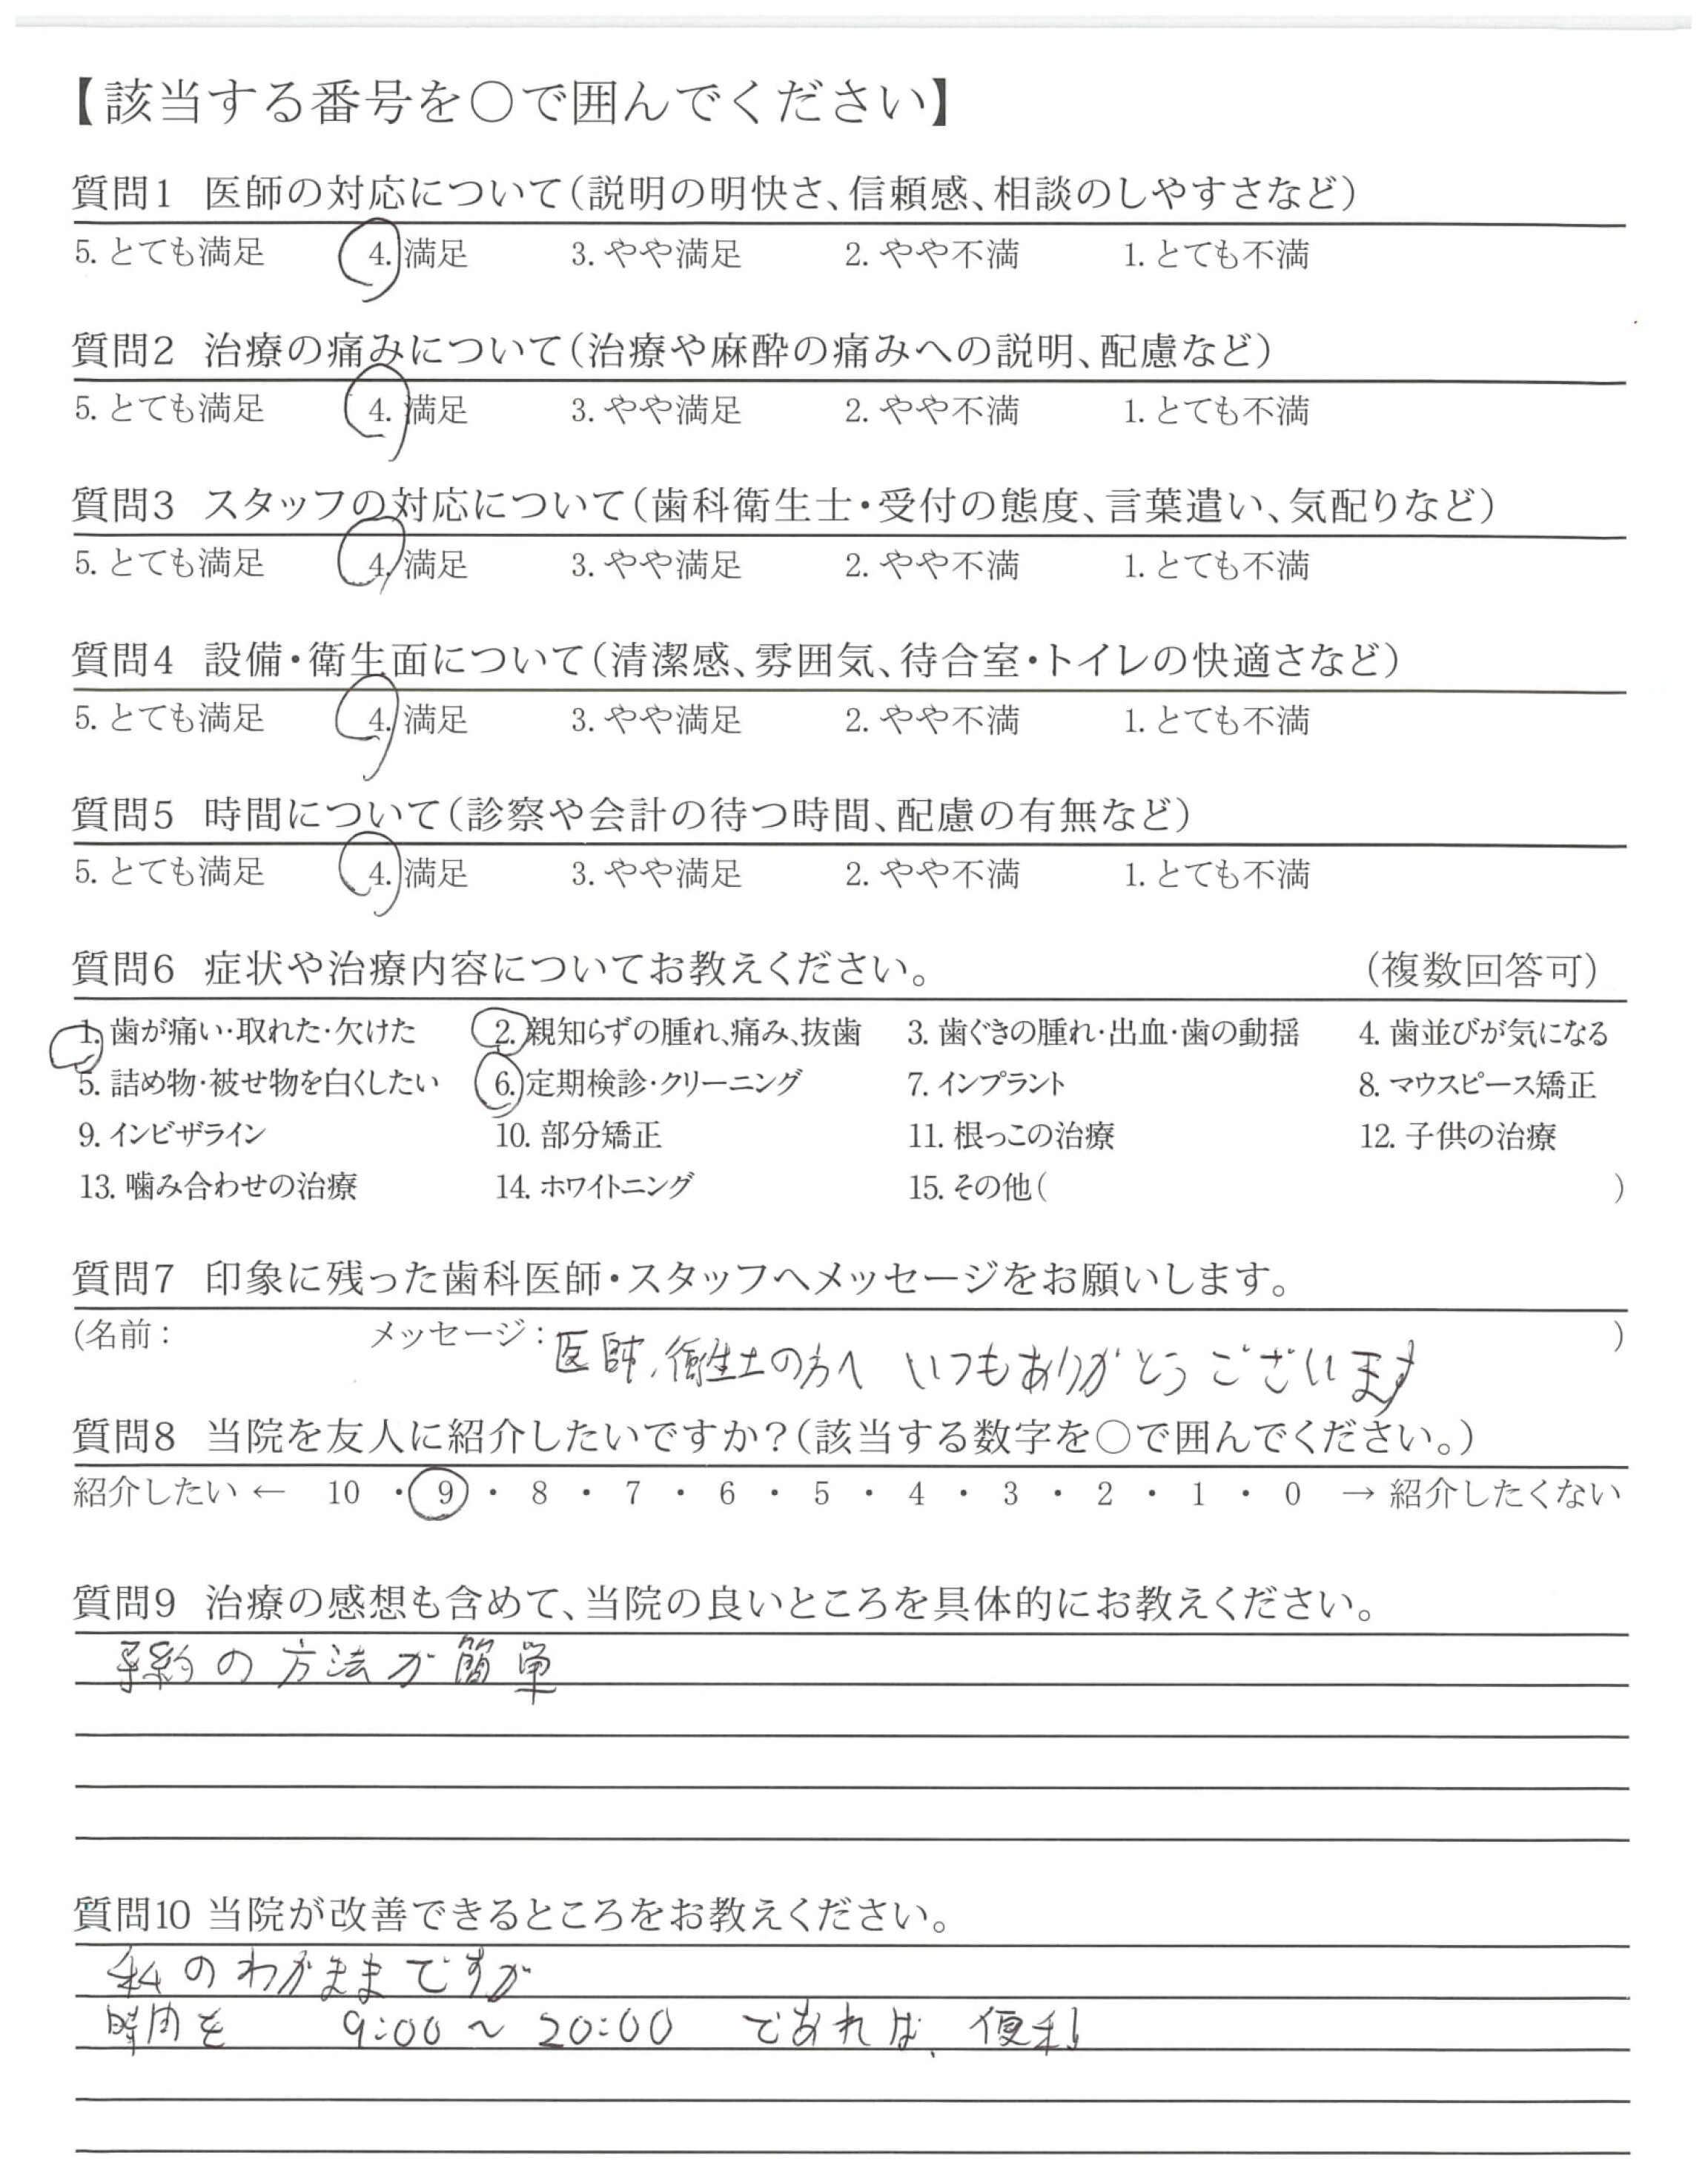 【該当する番号を○で囲んでください】
質問1 医師の対応について(説明の明快さ、信頼感、相談のしやすさなど)
5. とても満足 4. 満足 3. やや満足 2. やや不満 1. とても不満
質問2 治療の痛みについて(治療や麻酔の痛みへの説明、配慮など)
5. とても満足 4. 満足 3. やや満足 2. やや不満 1. とても不満
質問3 スタッフの対応について(歯科衛生士・受付の態度、言葉遣い、気配りなど)
5. とても満足 4. 満足 3. やや満足 2. やや不満 1. とても不満
質問4 設備・衛生面について(清潔感、雰囲気、待合室・トイレの快適さなど)
5. とても満足 4. 満足 3. やや満足 2. やや不満 1. とても不満
質問5 時間について(診察や会計の待つ時間、配慮の有無など)
5. とても満足 4. 満足 3. やや満足 2. やや不満 1. とても不満
質問6 症状や治療内容についてお教えください。 (複数回答可)
1. 歯が痛い・取れた・欠けた 2. 親知らずの腫れ、痛み、抜歯 3. 歯ぐきの腫れ・出血・歯の動揺 4. 歯並びが気になる
5. 詰め物・被せ物を白くしたい 6. 定期検診・クリーニング 7. インプラント 8. マウスピース矯正
9. インビザライン 10. 部分矯正 11. 根っこの治療 12. 子供の治療
13. 噛み合わせの治療 14. ホワイトニング 15. その他( )
質問7 印象に残った歯科医師・スタッフへメッセージをお願いします。
(名前: メッセージ: 医師、衛生士の方へ いつもありがとうございます )
質問8 当院を友人に紹介したいですか?(該当する数字を○で囲んでください。)
紹介したい ← 10 ・ 9 ・ 8 ・ 7 ・ 6 ・ 5 ・ 4 ・ 3 ・ 2 ・ 1 ・ 0 → 紹介したくない
質問9 治療の感想も含めて、当院の良いところを具体的にお教えください。
予約の方法が簡単
質問10 当院が改善できるところをお教えください。
私のわがままですが
時間を 9:00～20:00 であれば、便利